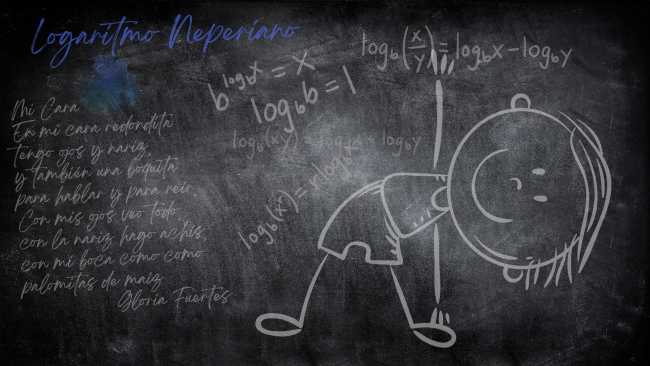 Logaritmo Neperiano
log_b(x/y) = log_b x - log_b y
b^log_b x = x
log_b b = 1
log_b(xy) = log_b x + log_b y
log_b(xⁿ) = n log_b x
Mi Cara
En mi cara redondita
tengo ojos y nariz,
y también una boquita
para hablar y para reir.
Con mis ojos veo todo,
con la nariz hago achís,
con mi boca como como
palomitas de maiz
Gloria Fuertes